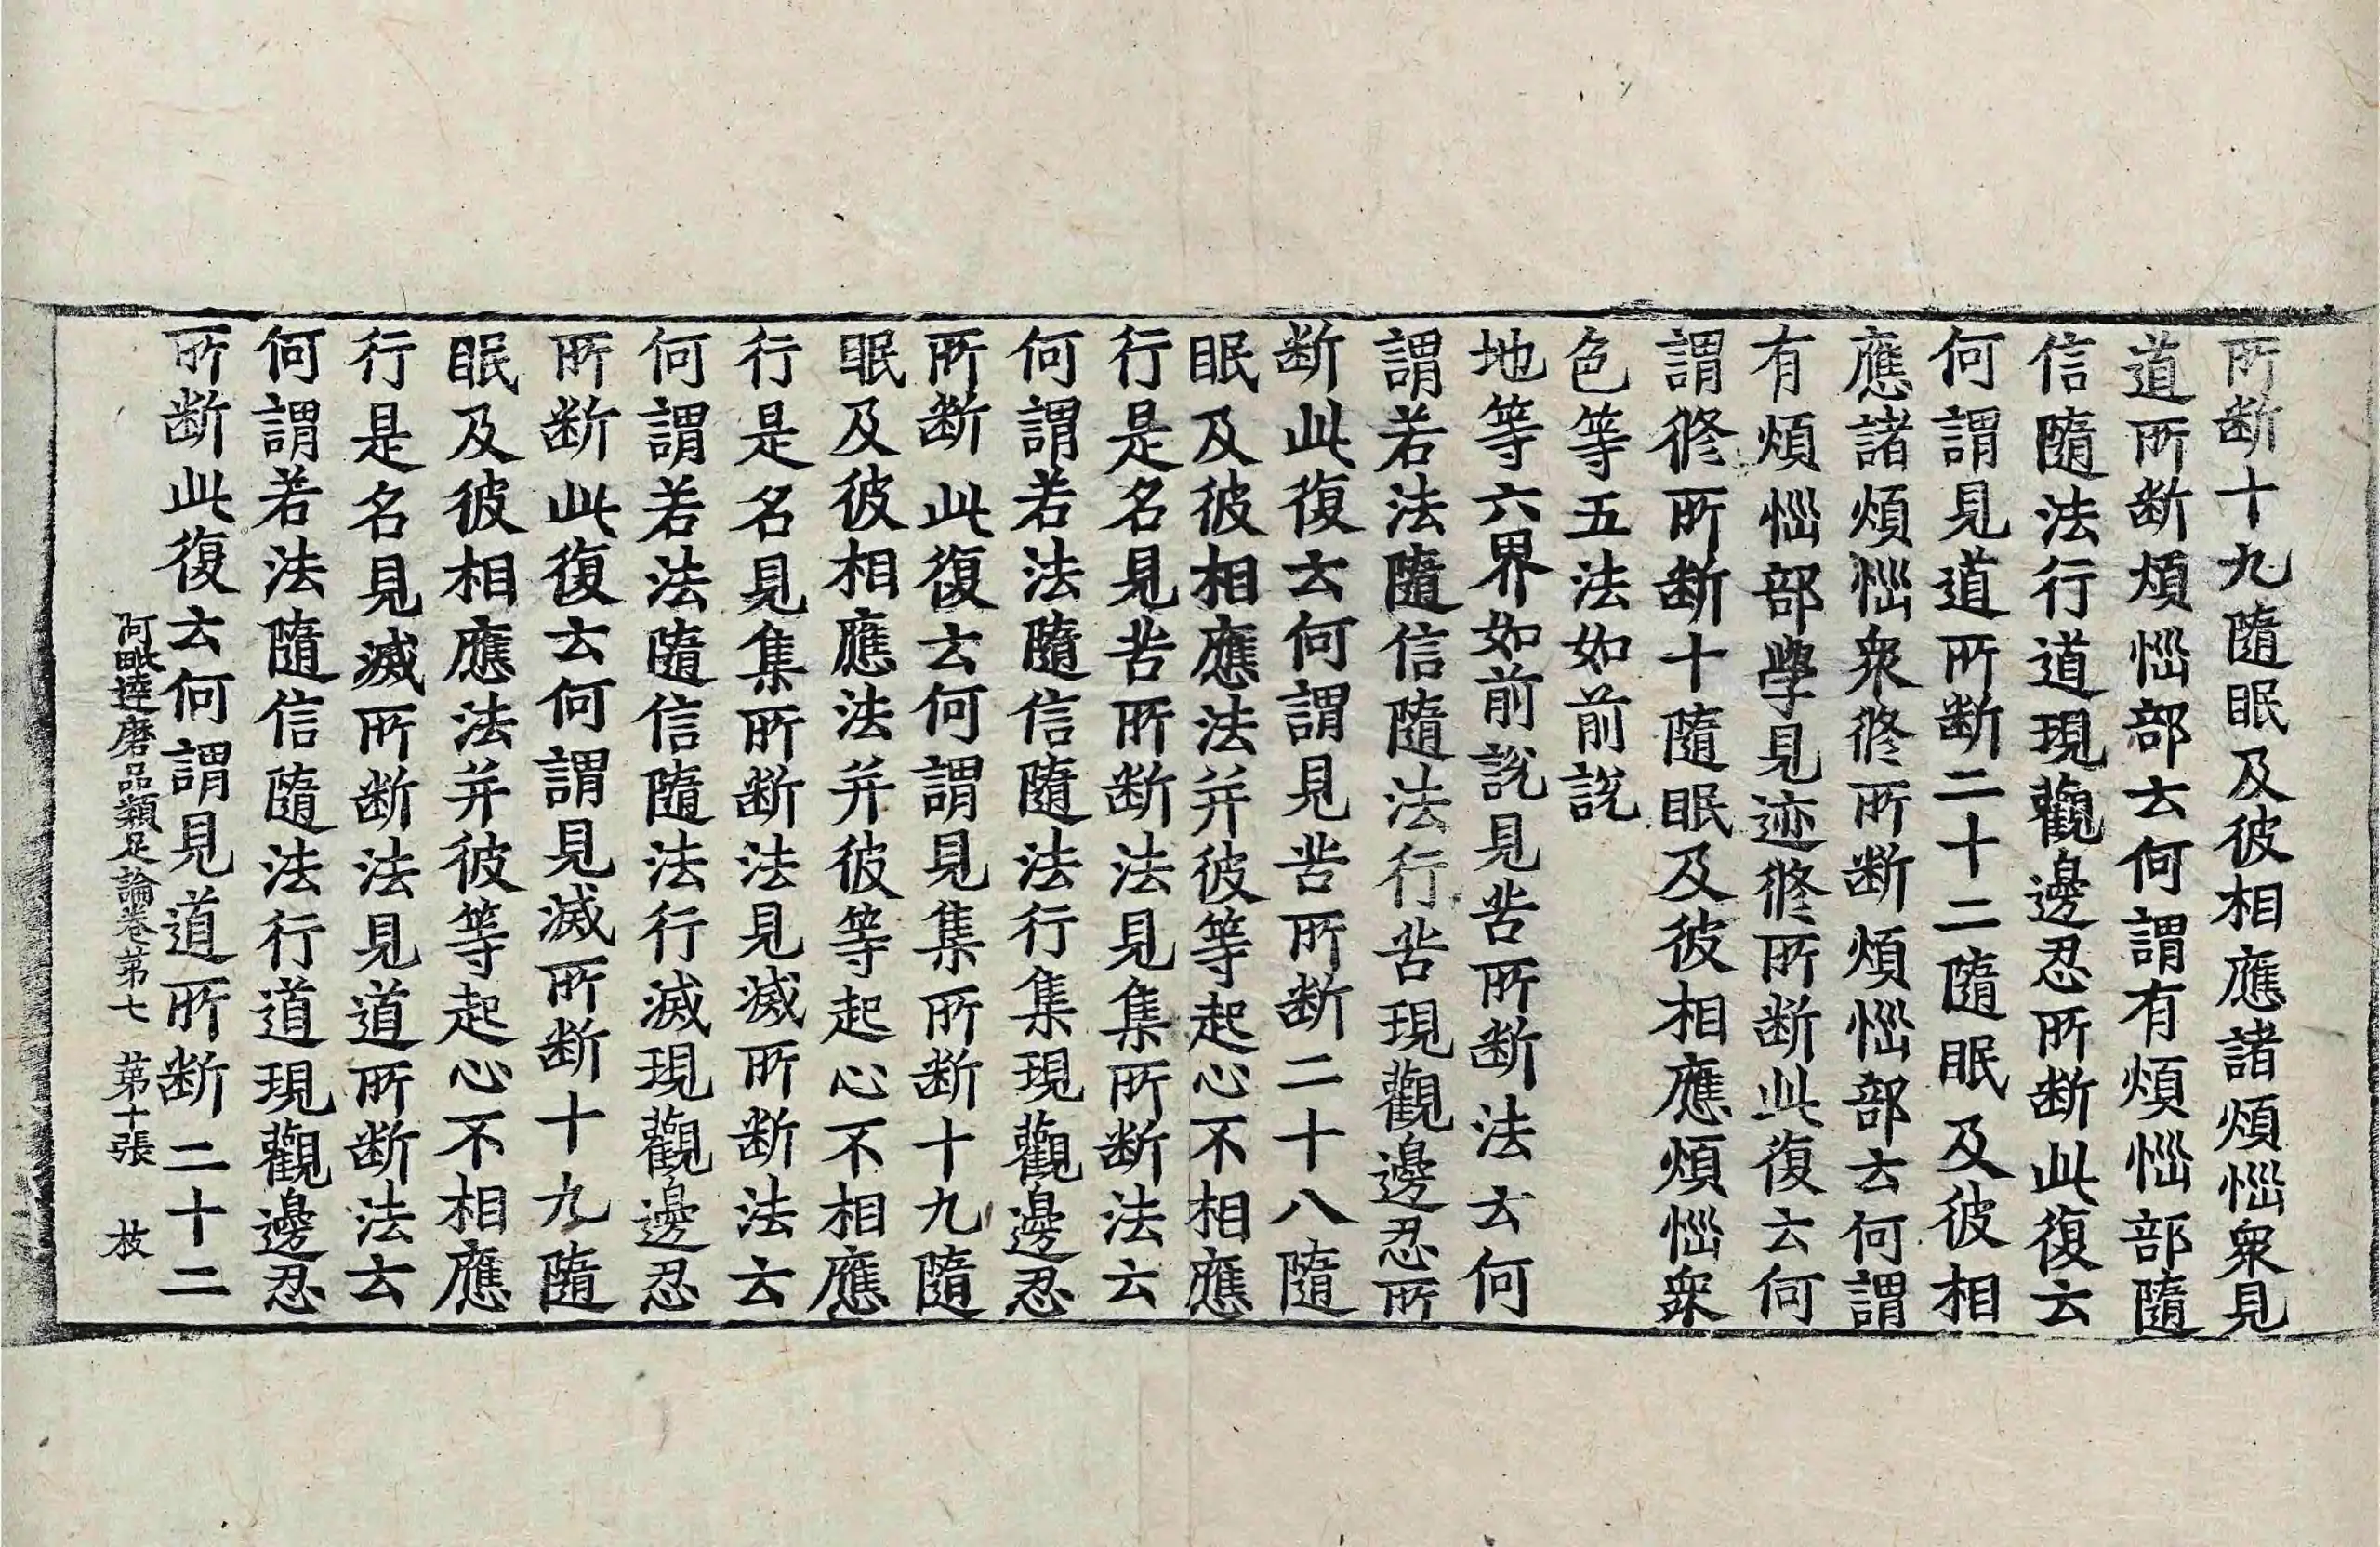 所断十九隨眠及彼相應諸煩惱衆見
道所断煩惱部云何謂有煩惱部隨
信隨法行道現觀邊忍所断此復云
何謂見道所断二十二隨眠及彼相
應諸煩惱衆修所断煩惱部云何謂
有煩惱部學見迹修所断此復云何
謂修所断十隨眠及彼相應煩惱衆
色等五法如前說
地等六界如前說見苦所断法云何
謂若法隨信隨法行苦現觀邊忍所
断此復云何謂見苦所断二十八隨
眠及彼相應法并彼等起心不相應
行是名見苦所断法見集所断法云
何謂若法隨信隨法行集現觀邊忍
所断此復云何謂見集所断十九隨
眠及彼相應法并彼等起心不相應
行是名見集所断法見滅所断法云
何謂若法隨信隨法行滅現觀邊忍
所断此復云何謂見滅所断十九隨
眠及彼相應法并彼等起心不相應
行是名見滅所断法見道所断法云
何謂若法隨信隨法行道現觀邊忍
所断此復云何謂見道所断二十二
阿毗達磨品類足論卷第七 第十張 枝